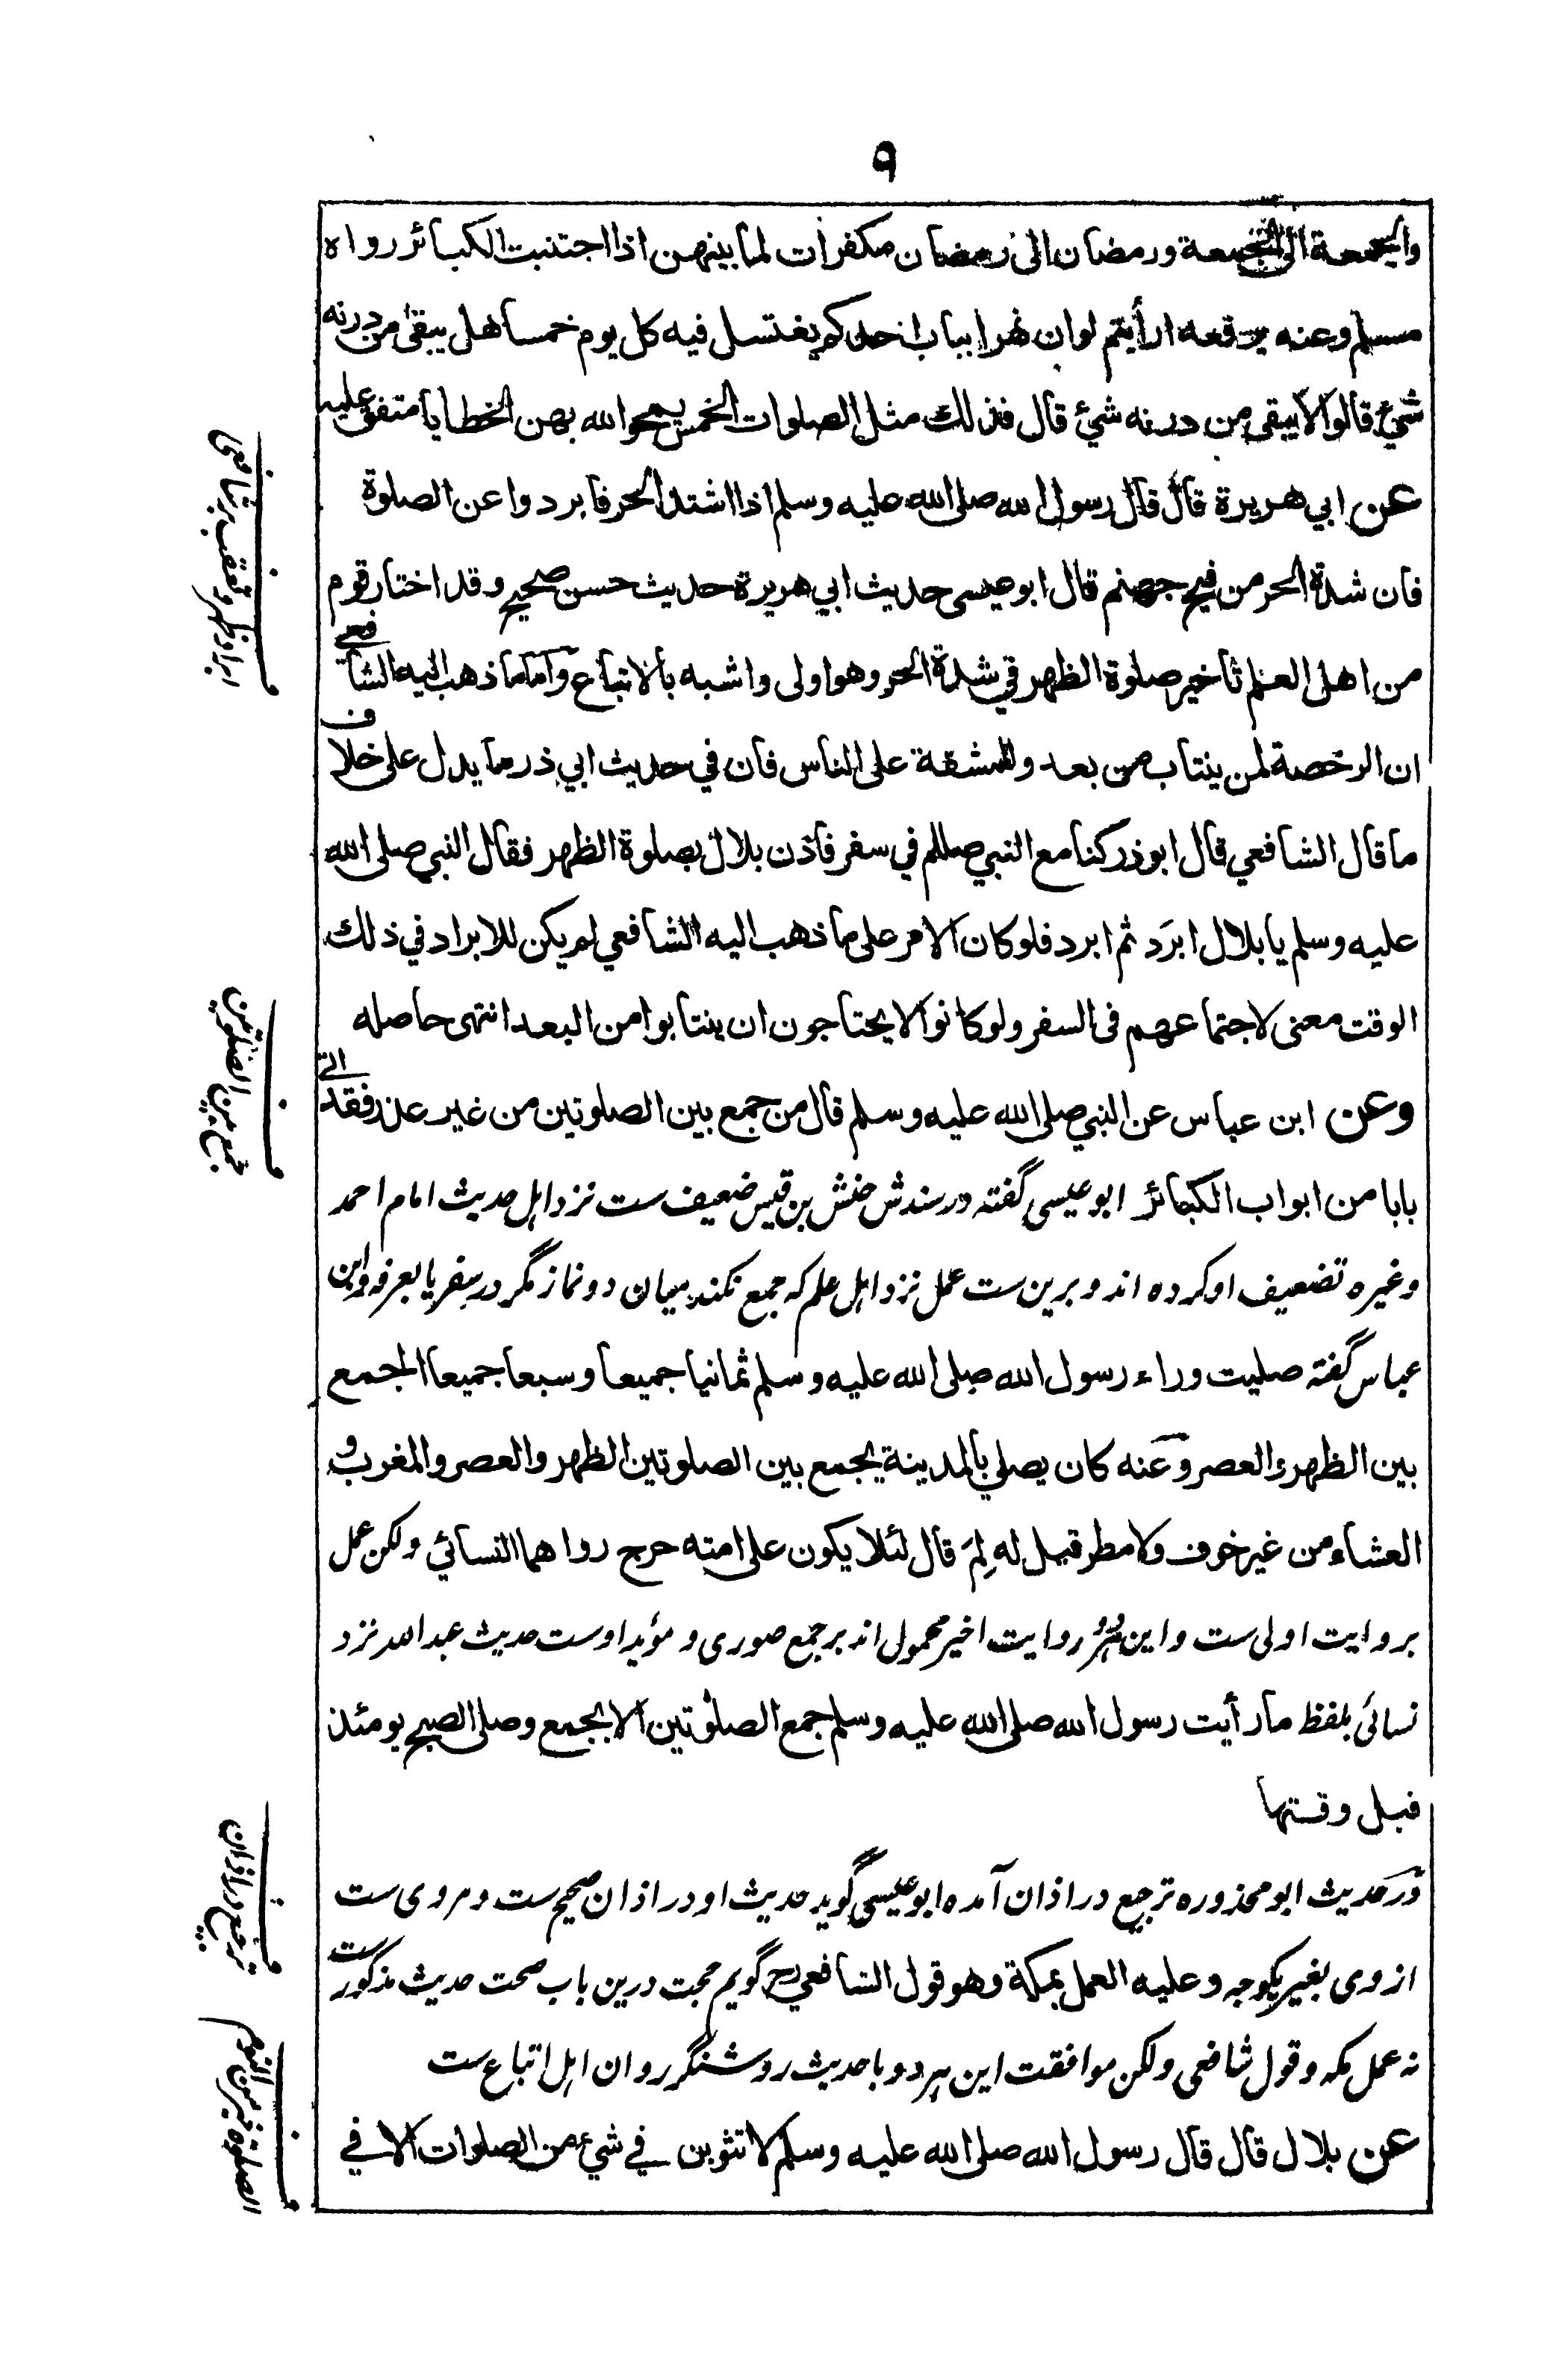 ۹
والجمعة الى الجمعة ورمضان الى رمضان مكفرات لما بينهن اذا اجتنبت الكبائر رواه
مسلم وعنه يرفعه ارأيتم لوان نهرا بباب احدكم يغتسل فيه كل يوم خمسا هل يبقى من درنه
شئ قالوا لا يبقى من درنه شئ قال فذلك مثل الصلوات الخمس يمحو الله بهن الخطايا متفق عليه
عن ابي هريرة قال قال رسول الله صلى الله عليه وسلم اذا اشتد الحر فابردوا عن الصلوة
فان شدة الحر من فيح جهنم قال ابو عيسى حديث ابي هريرة حديث حسن صحيح وقد اختار قوم
من اهل العلم تاخير صلوة الظهر في شدة الحر وهو اولى واشبه بالاتباع واما ما ذهب اليه الشافعي
ان الرخصة لمن ينتاب من بعد وللمشقة على الناس فان في حديث ابي ذر ما يدل على خلاف
ما قال الشافعي قال ابو ذر كنا مع النبي صللم في سفر فاذن بلال بصلوة الظهر فقال النبي صلى الله
عليه وسلم يا بلال ابرد ثم ابرد فلو كان الامر على ما ذهب اليه الشافعي لم يكن للابراد في ذلك
الوقت معنى لاجتماعهم فى السفر ولو كانوا لا يحتاجون ان ينتابوا من البعد انتهى حاصله
وعن ابن عباس عن النبي صلى الله عليه وسلم قال من جمع بين الصلوتين من غير عذر فقد اتى
بابا من ابواب الكبائر ابو عيسى گفته در سندش حنش بن قيس ضعيف ست نزد اهل حديث امام احمد
وغيره تضعيف او كرده اند و برين ست عمل نزد اهل علم كه جمع نكند ميان دو نماز مگر در سفر يا بعرفه وابن
عباس گفته صليت وراء رسول الله صلى الله عليه وسلم ثمانيا جميعا وسبعا جميعا الجمع
بين الظهر والعصر وعنه كان يصلي بالمدينة يجمع بين الصلوتين الظهر والعصر والمغرب و
العشاء من غير خوف ولا مطر قيل له لِمَ قال لئلا يكون على امته حرج رواهما النسائي ولكن عمل
بروايت اولى ست و اين هر دو روايت اخير محمول اند بر جمع صورى و مؤيد اوست حديث عبد الله نزد
نسائى بلفظ ما رأيت رسول الله صلى الله عليه وسلم جمع الصلوتين الا بجمع وصلى الصبح يومئذ
قبل وقتها
در حديث ابو محذوره ترجيع در اذان آمده ابو عيسى گويد حديث او در اذان صحيح ست و مروى ست
از وى بغير يكوجه وعليه العمل بمكة وهو قول الشافعي رح گويم حجت درين باب صحت حديث مذكور ست
نه عمل مكه و قول شافعى ولكن موافقت اين هر دو با حديث روشنگر روان اهل اتباع ست
عن بلال قال قال رسول الله صلى الله عليه وسلم لا تثوبن في شئ من الصلوات الا في
ابراد ظهر وتعقب بر شافعى
جمع بين الصلوتين
ترجيع در اذان
الصلوة خير من النوم